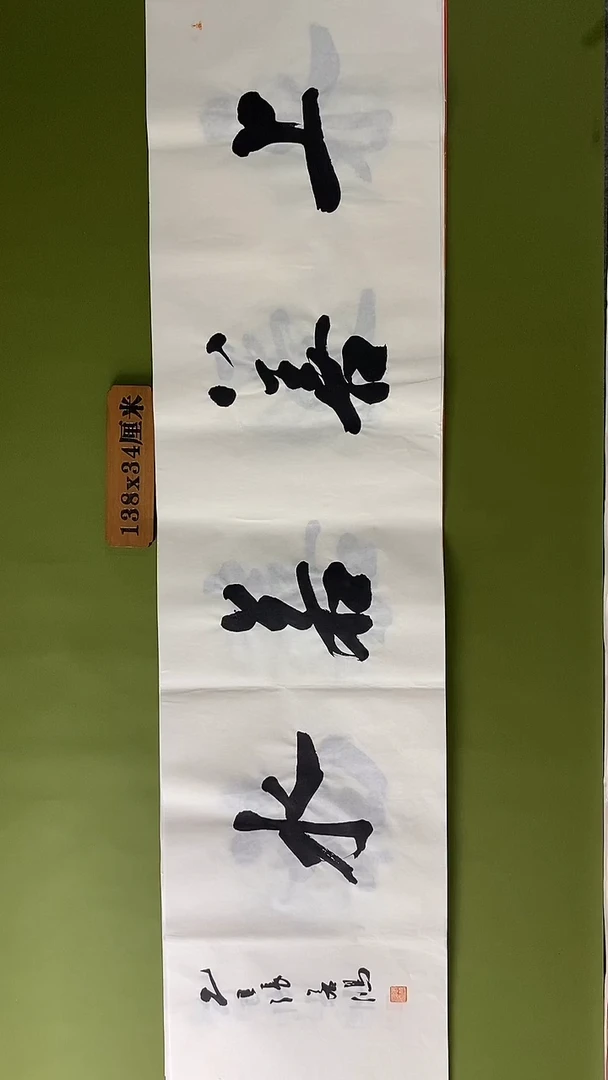 上善若水
138x34厘米